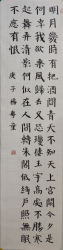 明月幾時有把酒問青天不知天上宮闕今夕是
何年我欲乘風歸去又恐瓊樓玉宇高處不勝寒
起舞弄清影何似在人間轉朱閣低綺戶照無眠
不應有恨
庚子